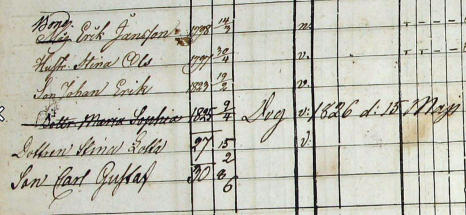 Bong.
Erik Jansson 1798 14/3 n.
Hustr Stina Ols 1797 30/4 v.
Son Johan Erik 1823 19/2 v.
Dotter Maria Sophia 1825 9/4 Dog v. 1826 d: 15 Maji
Dottren Stina Lotta 27 15/2 v.
Son Carl Gustaf 30 8/6